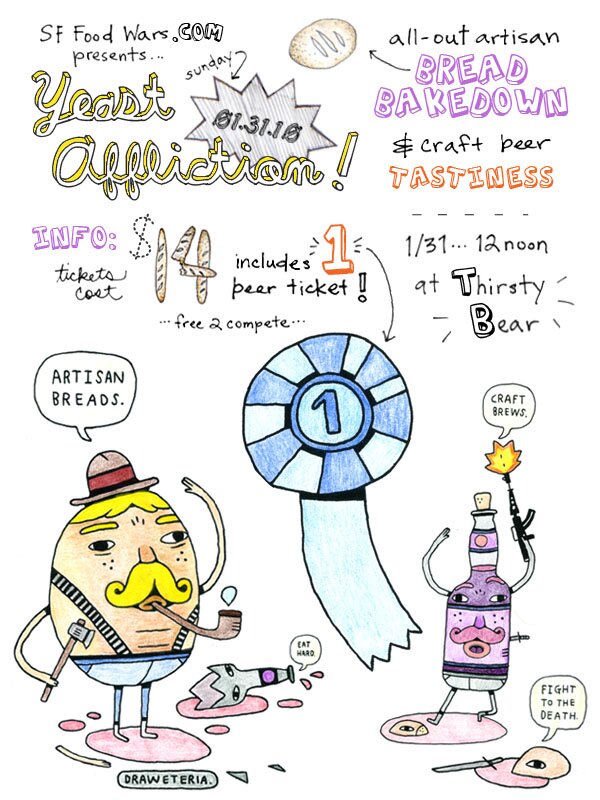 SF Food Wars.COM
presents...
sunday
Yeast
Affliction!
01.31.10
all-out artisan
BREAD
BAKEDOWN
& craft beer
TASTINESS
INFO:
tickets
cost
$14
includes 1
beer ticket!
...free 2 compete...
1/31... 12 noon
at Thirsty
Bear
1
ARTISAN
BREADS.
CRAFT
BREWS.
EAT
HARD.
FIGHT
TO THE
DEATH.
DRAWETERIA.